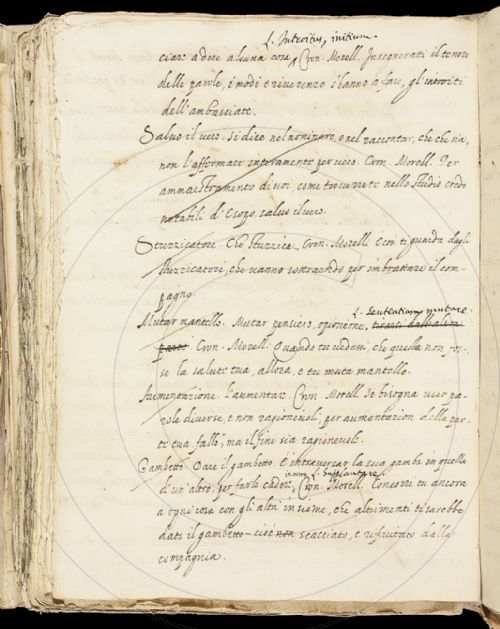 L. Introitus, initium.
ciar: a dire alcuna cosa, Cron. Morell. Insegneratti il tenore
delle parole, i modi e riverenze s'hanno a fare, gl'introiti
dell'ambasciate.
Salvo il vero. Si dice nel nominare, e nel raccontar, che che sia,
non l'affermare interamente per vero. Cron. Morell. Per
ammaestramento di voi, come troverrete nello studio credo
notabili d'Esopo, salvo il vero.
Stuzzicatore. Che stuzzica. Cron. Morell. E con ti guarda dagli
stuzzicatori, che vanno sottraendo per imbrattare il com-
pagno.
L. Sententiam mutare.
Mutar mantello. Mutar pensiero, opinione,
Cron. Morell. Quando tu vedessi, che questa non fos-
se la salute tua, allora, e tu muta mantello.
Aumentazione. L'aumentar. Cron. Morell. Se bisogna usar pa-
role diverse, e non ragionevoli, per aumentazion della par-
te tua, fallo, ma il fine sia ragionevole.
Gambetto. Dare il gambetto. È intraversar la sua gamba in quella
L. Supplantare.
d'un'altro, per farlo cadere, Cron. Morell. Concorri tu ancora
a ogni cosa con gli altri insieme, che altrimenti ti sarebbe
dato il gambetto - cioè non scacciato, e rifiutato dalla
compagnia.